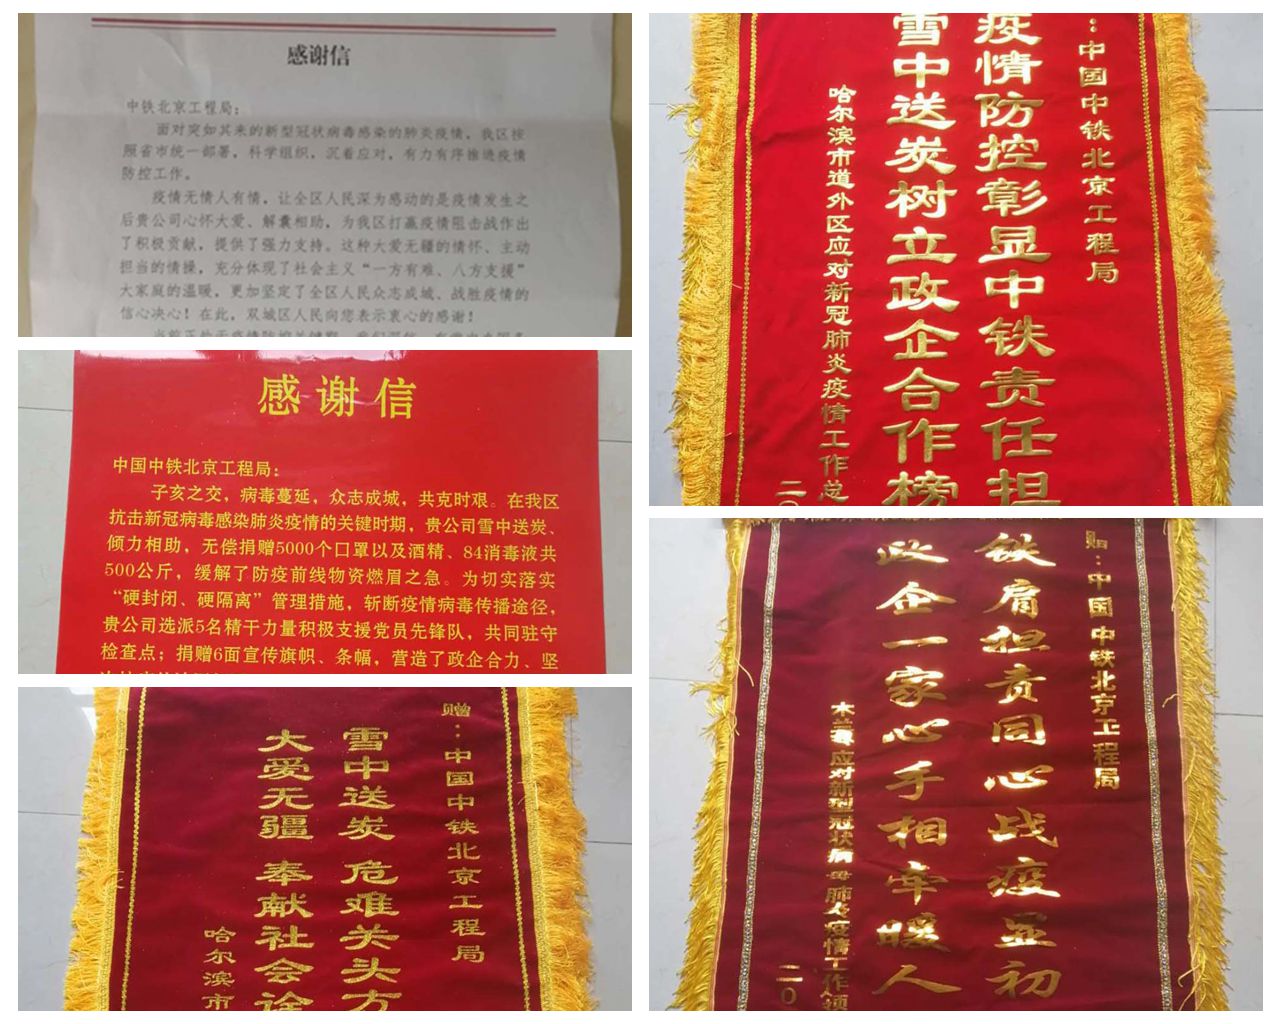 感谢信
中铁北京工程局：
面对突如其来的新型冠状病毒感染的肺炎疫情，我区按
照省市统一部署，科学组织，沉着应对，有力有序推进疫情
防控工作。
疫情无情人有情，让全区人民深为感动的是疫情发生之
后贵公司心怀大爱、解囊相助，为我区打赢疫情阻击战作出
了积极贡献，提供了强力支持。这种大爱无疆的情怀、主动
担当的情操，充分体现了社会主义“一方有难、八方支援”
大家庭的温暖，更加坚定了全区人民众志成城、战胜疫情的
信心决心！在此，双城区人民向您表示衷心的感谢！
感谢信
中国中铁北京工程局：
子亥之交，病毒蔓延，众志成城，共克时艰。在我区
抗击新冠病毒感染肺炎疫情的关键时期，贵公司雪中送炭、
倾力相助，无偿捐赠5000个口罩以及酒精、84消毒液共
500公斤，缓解了防疫前线物资燃眉之急。为切实落实
“硬封闭、硬隔离”管理措施，斩断疫情病毒传播途径，
贵公司选派5名精干力量积极支援党员先锋队，共同驻守
检查点；捐赠6面宣传旗帜、条幅，营造了政企合力、坚
赠：中国中铁北京工程局
雪中送炭 危难关头方
大爱无疆 奉献社会诠
哈尔滨市
：中国中铁北京工程局
疫情防控彰显中铁责任担
雪中送炭树立政企合作榜
哈尔滨市道外区应对新冠肺炎疫情工作总
二〇
赠：中国中铁北京工程局
铁肩担责同心战疫显初
政企一家心手相牵暖人
木兰县应对新型冠状病毒肺炎疫情工作领
二〇